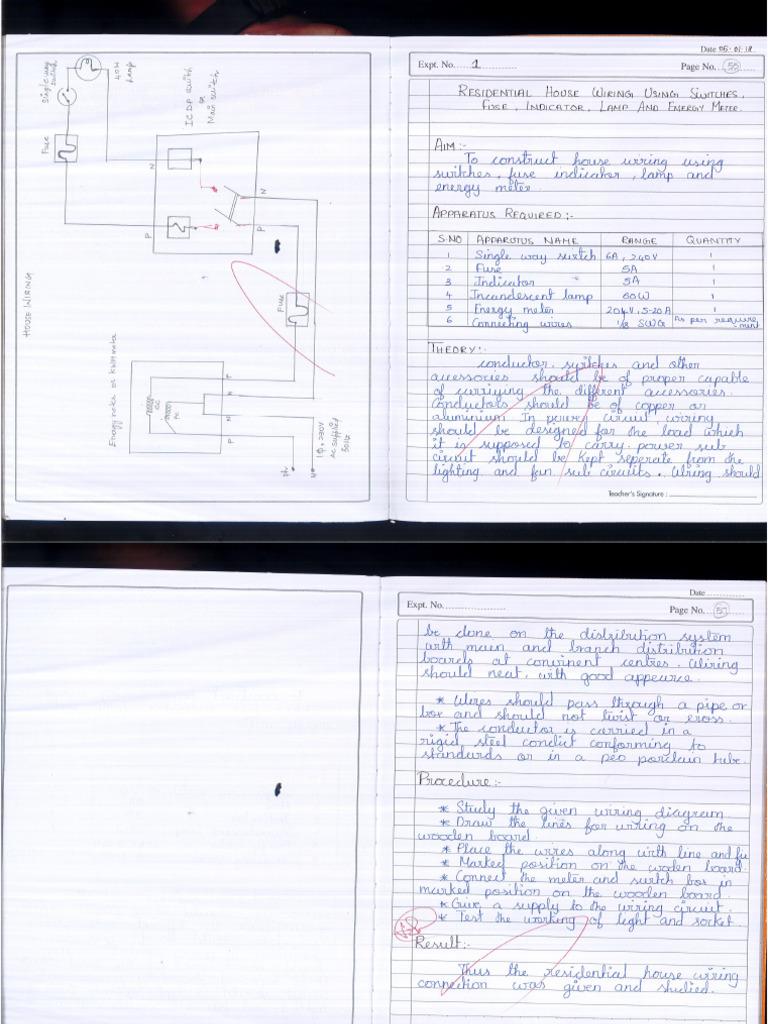 Date 05-01-18
Expt. No. 1
Page No. 55
RESIDENTIAL HOUSE WIRING USING SWITCHES,
FUSE, INDICATOR, LAMP AND ENERGY METER.
AIM:-
To construct house wiring using
switches, fuse indicator, lamp and
energy meter.
APPARATUS REQUIRED:-
S.NO APPARUTUS NAME RANGE QUANTITY
1 Single way switch 6A, 240V 1
2 Fuse 5A 1
3 Indicator 5A 1
4 Incandescent lamp 60W 1
5 Energy meter 204V, 5-20A 1
6 Connecting wires 1/8 SWG As per require
ment
THEORY:-
conductor, switches and other
accessories should be of proper capable
of curriying the different accessories.
Conductors should be of copper or
aluminium. In power circuit, wiring
should be designed for the load which
it is supposed to carry. power sub
circuit should be kept seperate from the
lighting and fan sub circuits. Wiring should
Teacher's Signature :
HOUSE WIRING
Single way
switch
40W
lamp
Fuse
ICDP switch
or
Main switch
N
P
N
P
Fuse
Energy meter or KWH meter
CC
PC
P
N
N
P
1Φ, 230V
AC supplied
50Hz
Ph
N
Date
Expt. No.
Page No.
be done on the distribution system
with main and branch distribution
boards at convinent centres. Wiring
should neat, with good appeurce.
* Wires should pass through a pipe or
box and should not twist or cross.
* The conductor is carried in a
rigid steel conduct conforming to
standards or in a peo porclain tube.
Procedure:-
* Study the given wiring diagram.
* Draw the lines for wiring on the
wooden board.
* Place the wires along with line and fu
* Marked position on the woden board.
* Connect the meter and switch box in
marked position on the wooden board.
* Give a supply to the wiring circuit.
* Test the working of light and socket.
Result:-
Thus the residential house wiring
connection was given and studied.